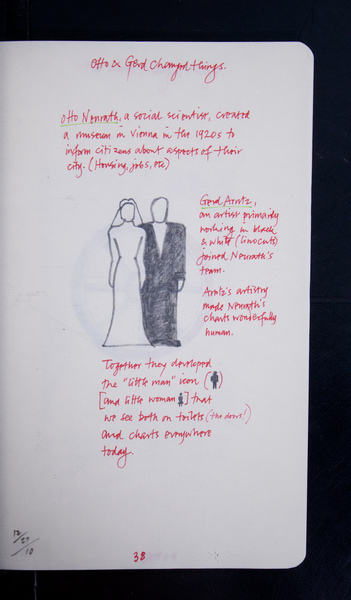 Otto & Gerd Changed Things.
Otto Neurath, a social scientist, created
a museum in Vienna in the 1920s to
inform citizens about aspects of their
city. (Housing, jobs, etc)
Gerd Arntz,
an artist primarily
working in black
& white (linocuts)
joined Neurath's
team.
Arntz's artistry
made Neurath's
charts wonderfully
human.
Together they developed
the "little man" icon ( )
[and little woman ] that
we see both on toilets (the doors!)
and charts everywhere
today.
12/27/10
38